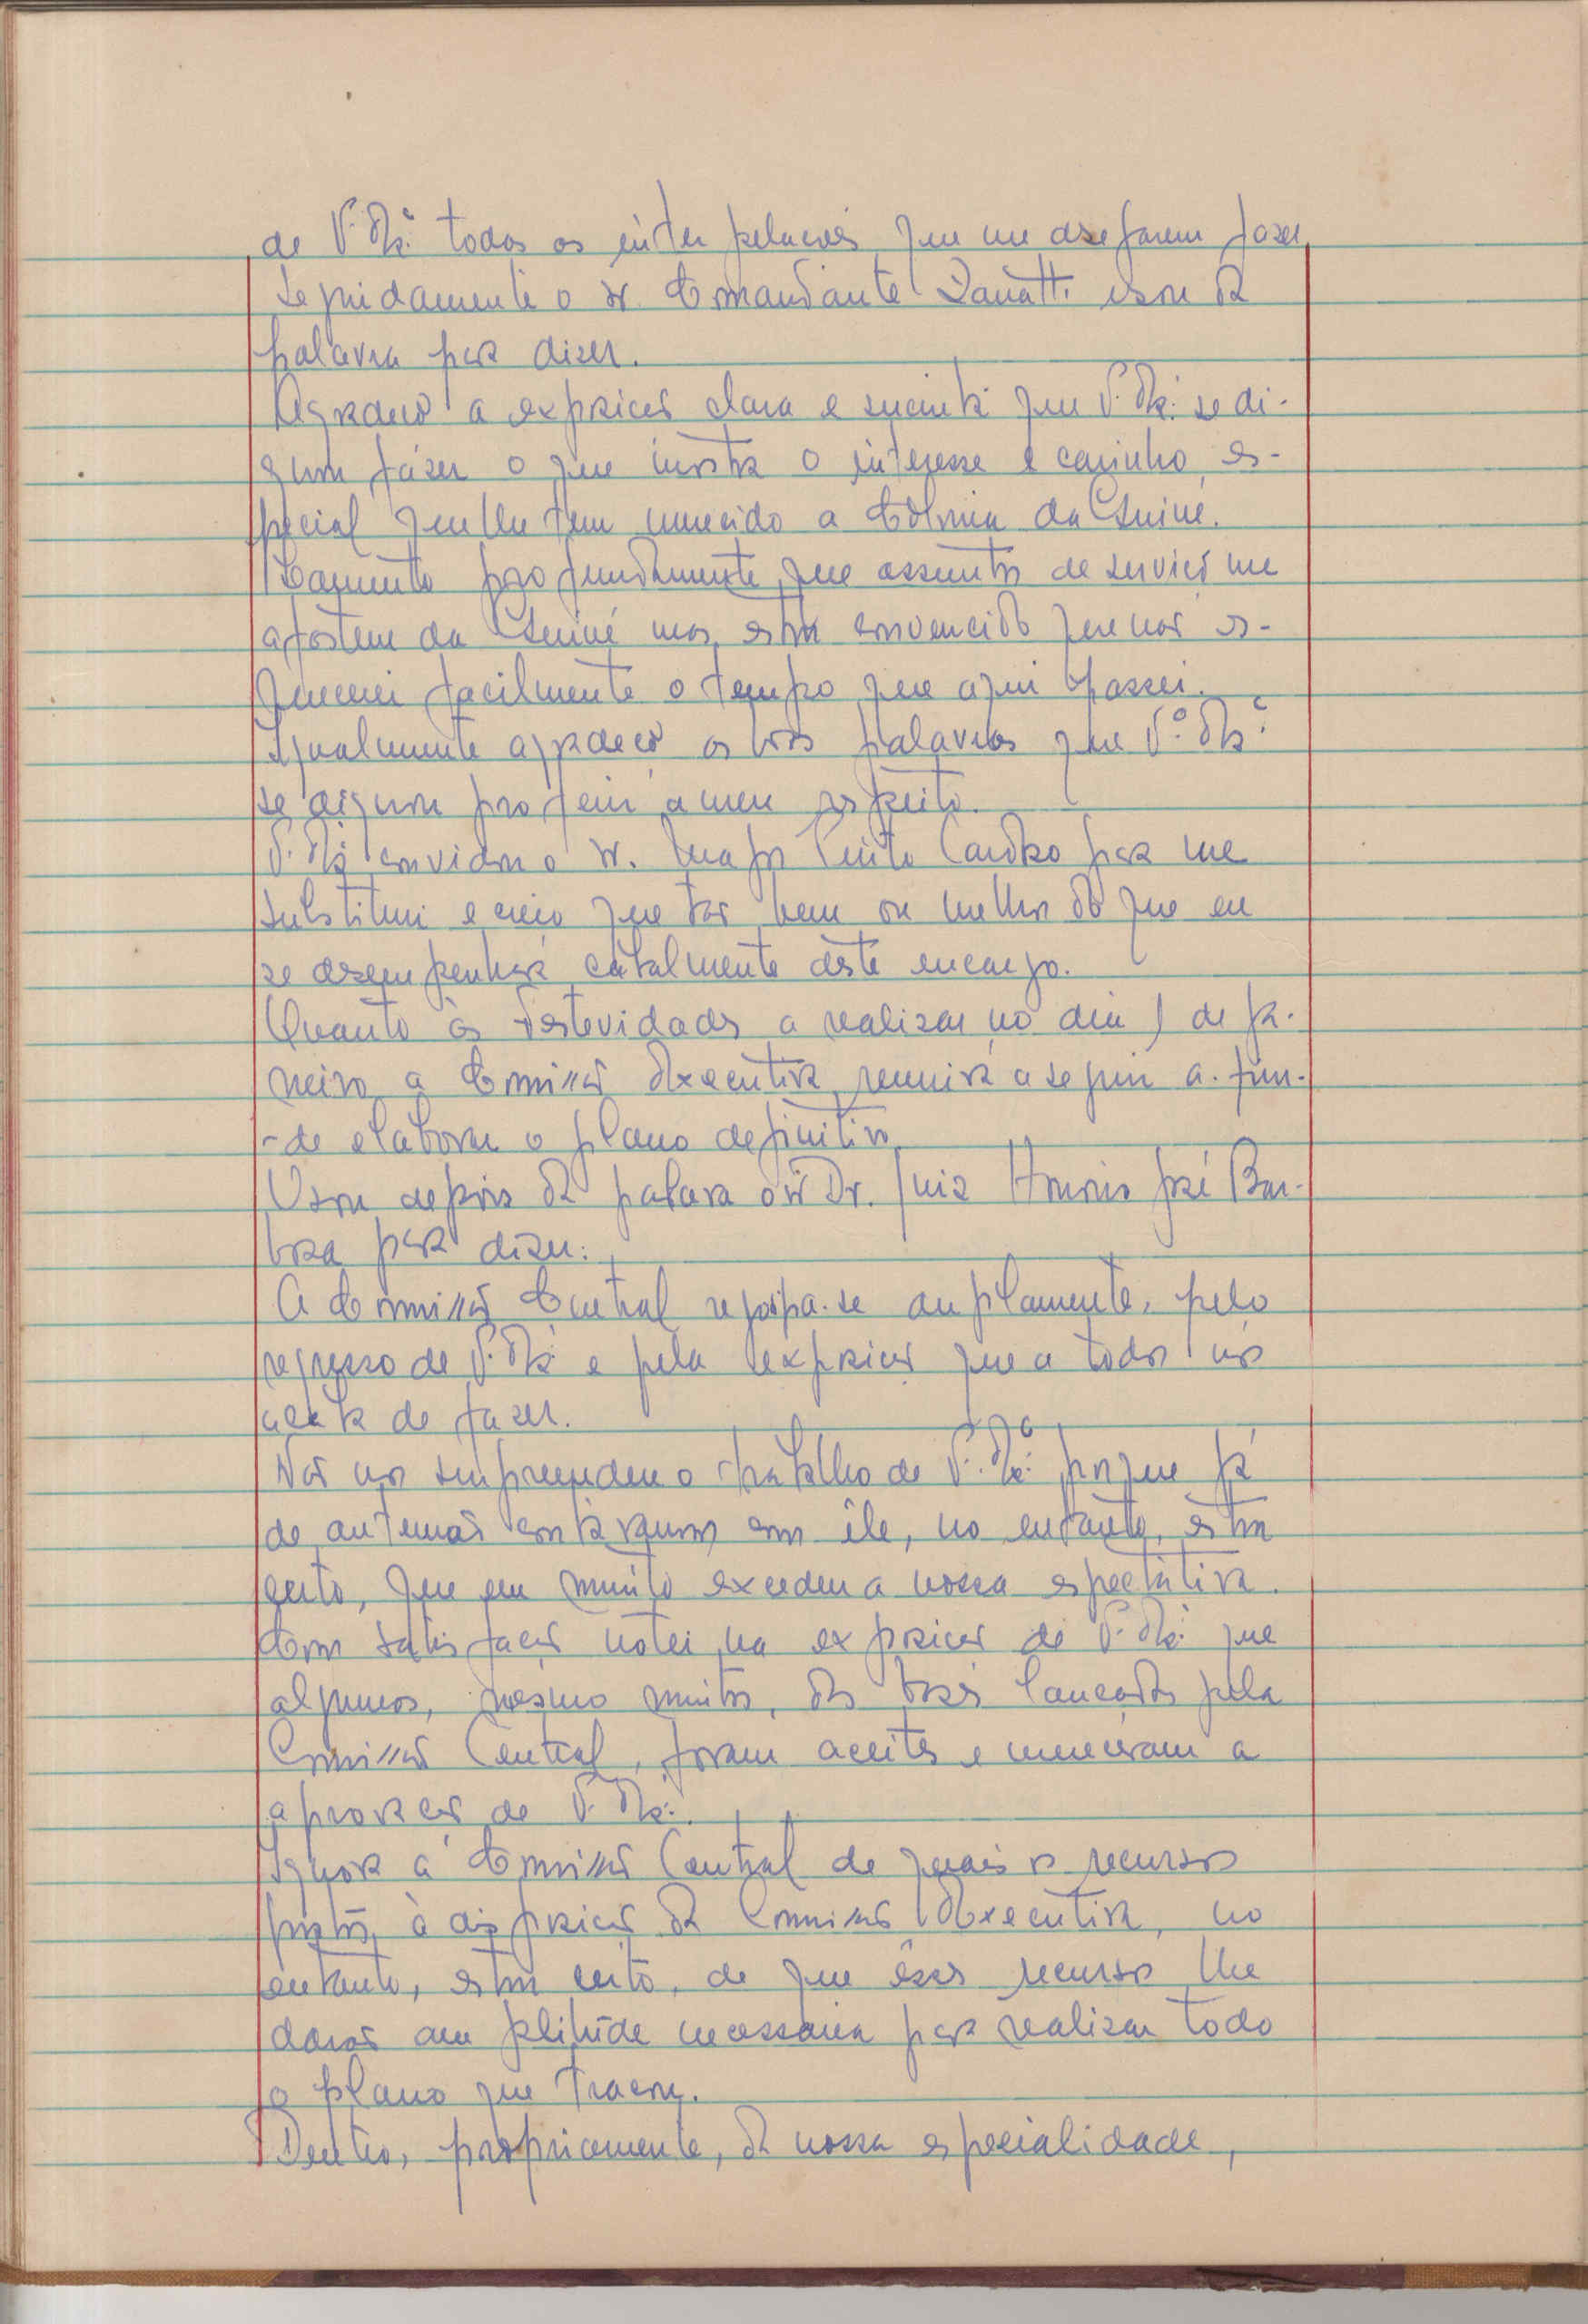 de V. Ex.ª todas as interpelações que me desejarem fazer.
Seguidamente o sr. Comandante Zanatti usou da
palavra para dizer.
Agradeço a exposição clara e sucinta que V. Ex.ª se di-
gnou fazer o que mostra o interesse e carinho es-
pecial que lhe tem merecido a Colonia da Guiné.
Lamento profundamente que assuntos de serviço me
afastem da Guiné mas, estou convencido que não es-
quecerei facilmente o tempo que aqui passei.
Igualmente agradeço as boas palavras que V.ª Ex.ª
se dignou proferir a meu respeito.
V. Ex.ª convidou o sr. Major Pinto Cardoso para me
substituir e creio que tão bem ou melhor do que eu
se desempenhará cabalmente dêste encargo.
Quanto às festevidades a realizar no dia 1 de Ja-
neiro a Comissão Executiva reunirá a seguir a-fim-
-de elaborar o plano definitivo.
Usou depois da palavra o sr Dr. Juiz Honorio José Bar-
bosa para dizer:
A Comissão Central regosija-se amplamente, pelo
regresso de V. Ex.ª e pela exposição que a todos nós
acaba de fazer.
Não nos surpreendeu o trabalho de V. Ex.ª porque já
de antemão contavamos com êle, no entanto, estou
certo, que em muito excedeu a nossa espectativa.
Com satisfação notei na exposição de V. Ex.ª que
algumas, mesmo muitas, das bases lançadas pela
Comissão Central, foram aceites e mereceram a
aprovação de V. Ex.ª.
Ignora a Comissão Central de quais os recursos
postos à disposição da Comissão Executiva, no
entanto, estou certo, de que êsses recursos lhe
darão amplitude necessária para realizar todo
o plano que traçou.
Dentro, propriamente, da nossa especialidade,